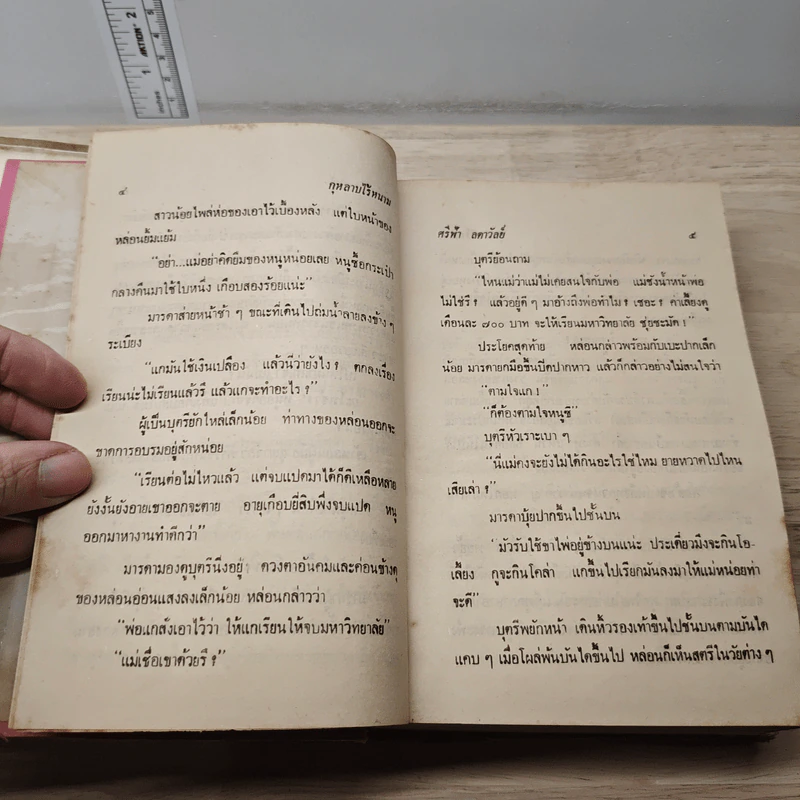 2
1
ACTION
inches
๔
กุหลาบไร้หนาม
สาวน้อยไพล่ห่อของเอาไว้เบื้องหลัง แต่ใบหน้าของ
หล่อนยิ้มแย้ม
“อย่า...แม่อย่าคิดยืมของหนูหน่อยเลย หนูซื้อกระเป๋า
กลางคืนมาใช้ใบหนึ่ง เกือบสองร้อยแน่ะ”
มารดาส่ายหน้าช้า ๆ ขณะที่เดินไปถ่มน้ำลายลงข้าง ๆ
ระเบียง
“แกมันใช้เงินเปลือง แล้วนี่ว่ายังไง ? ตกลงเรื่อง
เรียนน่ะไม่เรียนแล้วรึ แล้วแกจะทำอะไร ?”
ผู้เป็นบุตรียักไหล่เล็กน้อย ท่าทางของหล่อนออกจะ
ขาดการอบรมอยู่สักหน่อย
“เรียนต่อไม่ไหวแล้ว แต่จบแปดมาได้ก็ดีเหลือหลาย
ยังงั้นยังอายเขาออกจะตาย อายุเกือบยี่สิบพึ่งจบแปด หนู
ออกมาหางานทำดีกว่า”
มารดามองดูบุตรีนิ่งอยู่ ดวงตาอันคมและค่อนข้างดุ
ของหล่อนอ่อนแสงลงเล็กน้อย หล่อนกล่าวว่า
“พ่อแกสั่งเอาไว้ว่า ให้แกเรียนให้จบมหาวิทยาลัย”
“แม่เชื่อเขาด้วยรึ ?”
ศรีฟ้า ลดาวัลย์
๕
บุตรีย้อนถาม
“ไหนแม่ว่าแม่ไม่เคยสนใจกับพ่อ แม่ชังน้ำหน้าพ่อ
ไม่ใช่รึ ? แล้วอยู่ดี ๆ มาอ้างถึงพ่อทำไม ? เชอะ ! ค่าเลี้ยงดู
เดือนละ ๗๐๐ บาท จะให้เรียนมหาวิทยาลัย ชุ่ยชะมัด !”
ประโยคสุดท้าย หล่อนกล่าวพร้อมกับเบะปากเล็ก
น้อย มารดายกมือขึ้นปิดปากหาว แล้วก็กล่าวอย่างไม่สนใจว่า
“ตามใจแก !”
“ก็ต้องตามใจหนูซิ”
บุตรีหัวเราะเบา ๆ
“นี่แม่คงจะยังไม่ได้กินอะไรใช่ไหม ยายหวาดไปไหน
เสียเล่า ?”
มารดาบุ้ยปากขึ้นไปชั้นบน
“มัวรับใช้ขาไพ่อยู่ข้างบนแน่ะ ประเดี๋ยวมึงจะกินโอ-
เลี้ยง กูจะกินโคล่า แกขึ้นไปเรียกมันลงมาให้แม่หน่อยท่า
จะดี”
บุตรีพยักหน้า เดินหิ้วรองเท้าขึ้นไปชั้นบนตามบันได
แคบ ๆ เมื่อโผล่พ้นบันไดขึ้นไป หล่อนก็เห็นสตรีในวัยต่าง ๆ